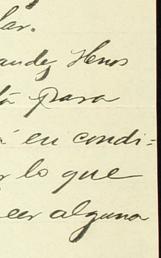 lar.
andez Hnos
tá para
á en condi=
r lo que
eer alguna